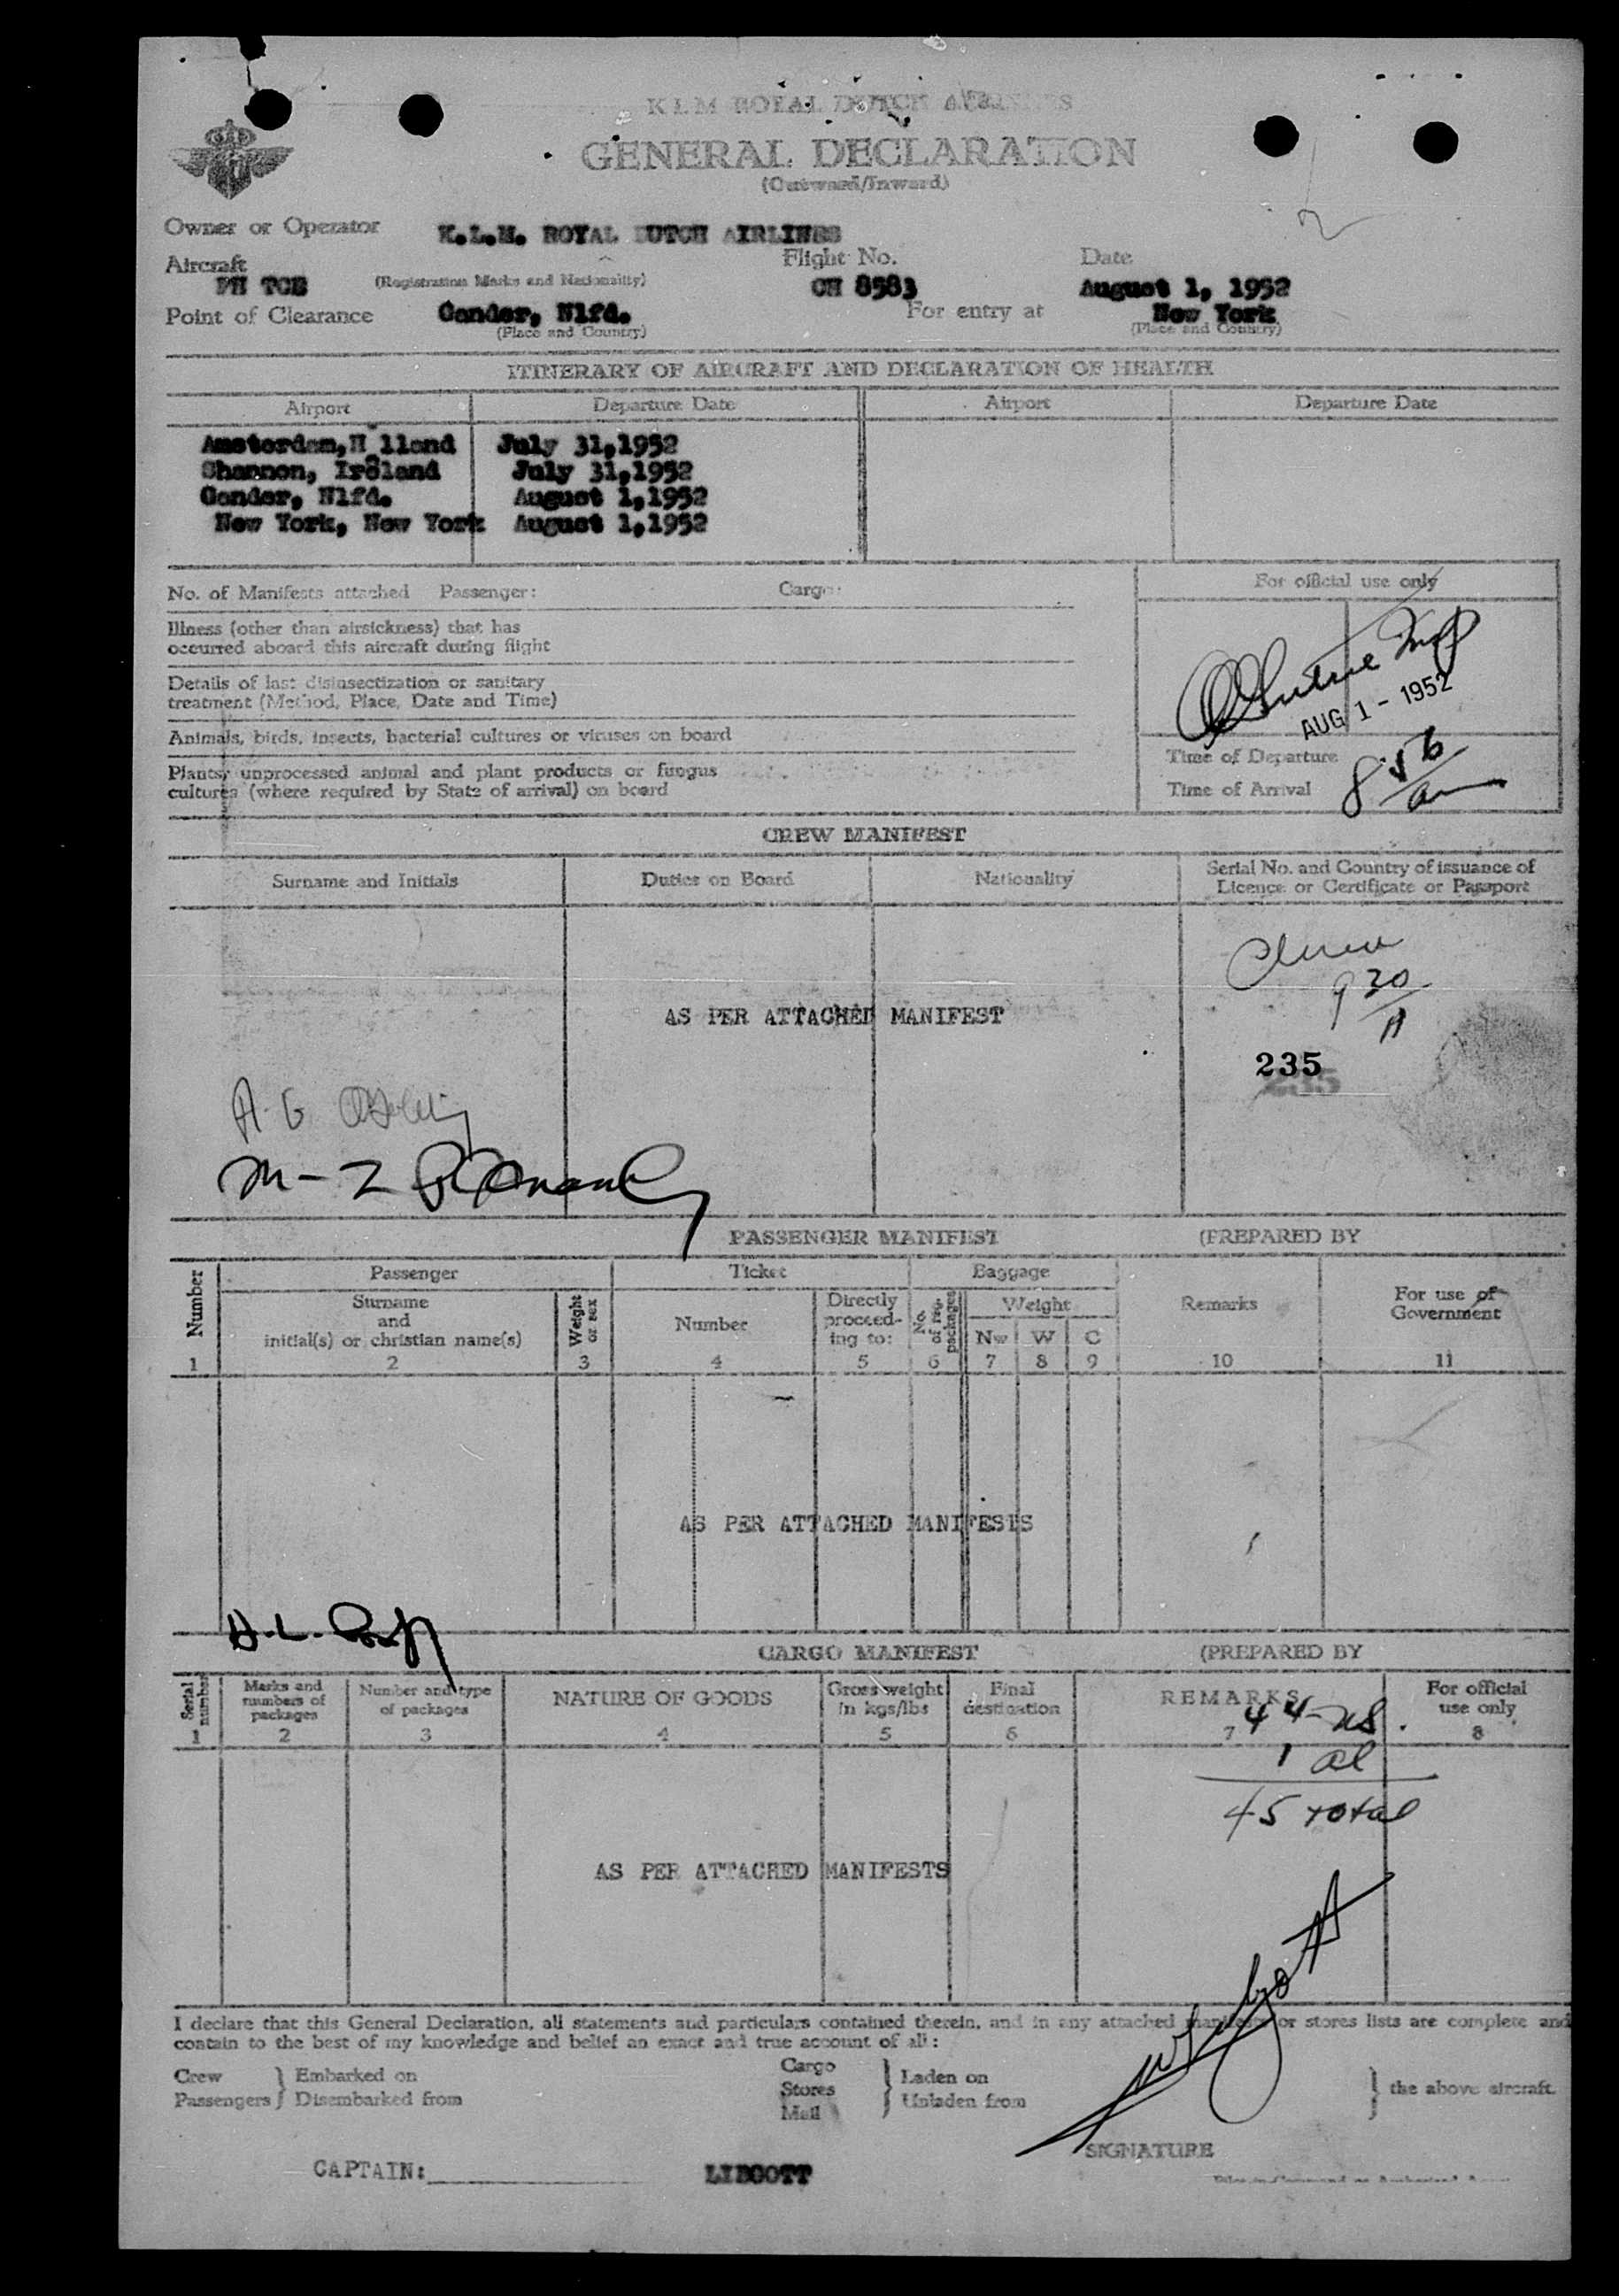 KLM ROYAL DUTCH AIRLINES
GENERAL DECLARATION
(Outward/Inward)
2
Owner or Operator K.L.M. ROYAL DUTCH AIRLINES
Aircraft Flight No. Date
PH (Registration Marks and Nationality) CH 8583 August 1, 1952
Point of Clearance Gander, Nlfd. For entry at New York
(Place and Country) (Place and Country)
ITINERARY OF AIRCRAFT AND DECLARATION OF HEALTH
Airport Departure Date Airport Departure Date
Amsterdam,H lland July 31,1952
Shannon, Ireland July 31,1952
Gander, Nlfd. August 1,1952
New York, New York August 1,1952
No. of Manifests attached Passenger: Cargo: For official use only
Illness (other than airsickness) that has
occurred aboard this aircraft during flight
Details of last disinsectization or sanitary
treatment (Method, Place, Date and Time)
AUG 1 - 1952
Animals, birds, insects, bacterial cultures or viruses on board
Time of Departure
Plants, unprocessed animal and plant products or fungus
cultures (where required by State of arrival) on board
Time of Arrival 8 56 am
CREW MANIFEST
Surname and Initials Duties on Board Nationality Serial No. and Country of issuance of
Licence or Certificate or Passport
930
AS PER ATTACHED MANIFEST
235
PASSENGER MANIFEST (PREPARED BY
Number Passenger Ticket Baggage Remarks For use of
Government
Surname
and
initial(s) or christian name(s) Weight
or sex Number Directly
proceed-
ing to: No.
of reg.
packages Weight
Nw W C
1 2 3 4 5 6 7 8 9 10 11
AS PER ATTACHED MANIFESTS
H.L.
CARGO MANIFEST (PREPARED BY
Serial
number Marks and
numbers of
packages Number and type
of packages NATURE OF GOODS Gross weight
in kgs/lbs Final
destination REMARKS For official
use only
1 2 3 4 5 6 7 8
44-us
1 al
45 total
AS PER ATTACHED MANIFESTS
I declare that this General Declaration, all statements and particulars contained therein, and in any attached manifests or stores lists are complete and
contain to the best of my knowledge and belief an exact and true account of all:
Crew Embarked on Cargo Laden on
Passengers Disembarked from Stores Unladen from the above aircraft.
Mail
SIGNATURE
CAPTAIN: LIBGOTT